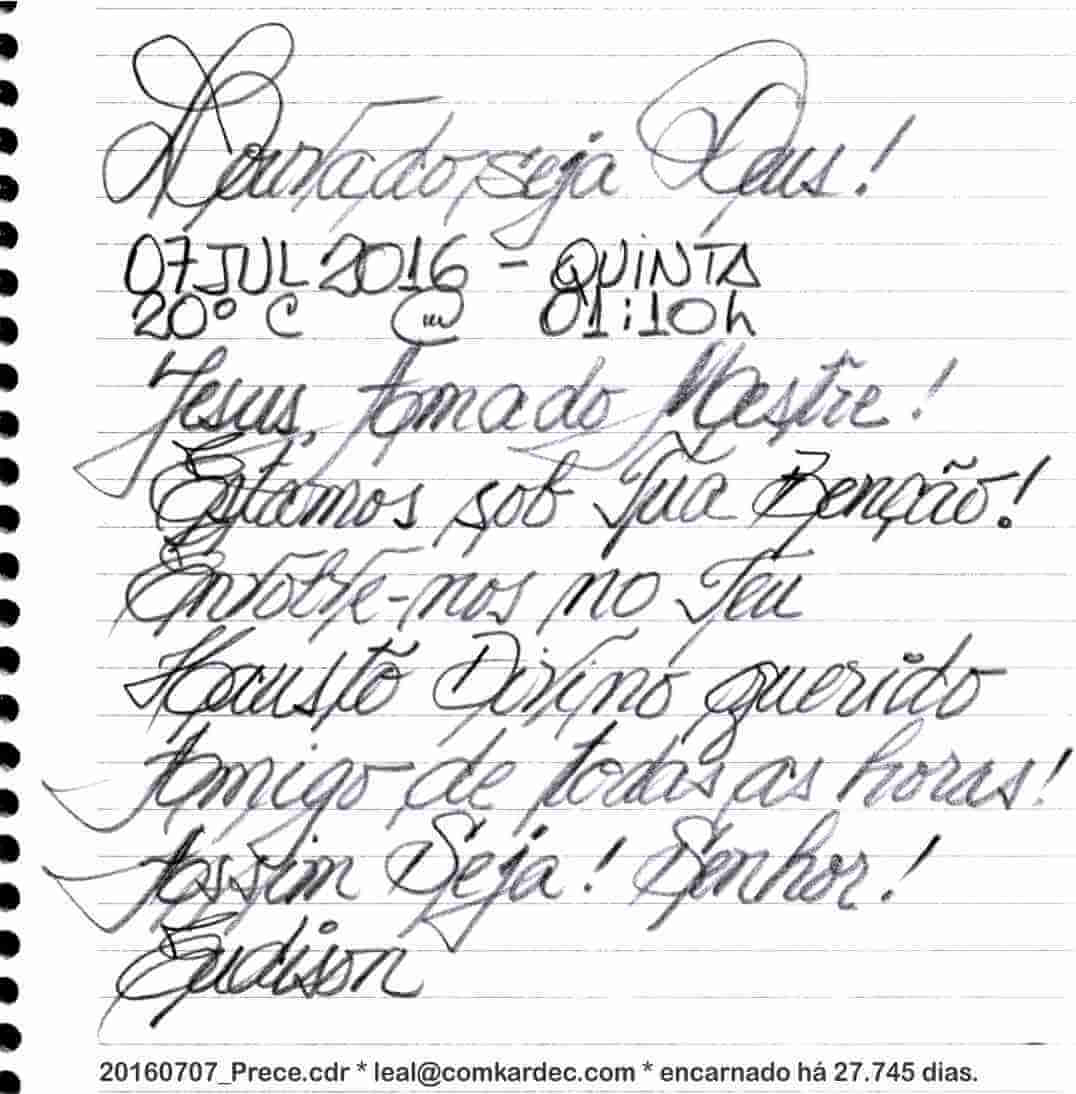 Louvado seja Deus!
07 JUL 2016 - QUINTA
20º C 01:10h
Jesus, Amado Mestre!
Estamos sob Tua Benção!
Envolve-nos no Teu
Hausto Divino querido
Amigo de todas as horas!
Assim Seja! Senhor!
Eudison
20160707_Prece.cdr * leal@comkardec.com * encarnado há 27.745 dias.